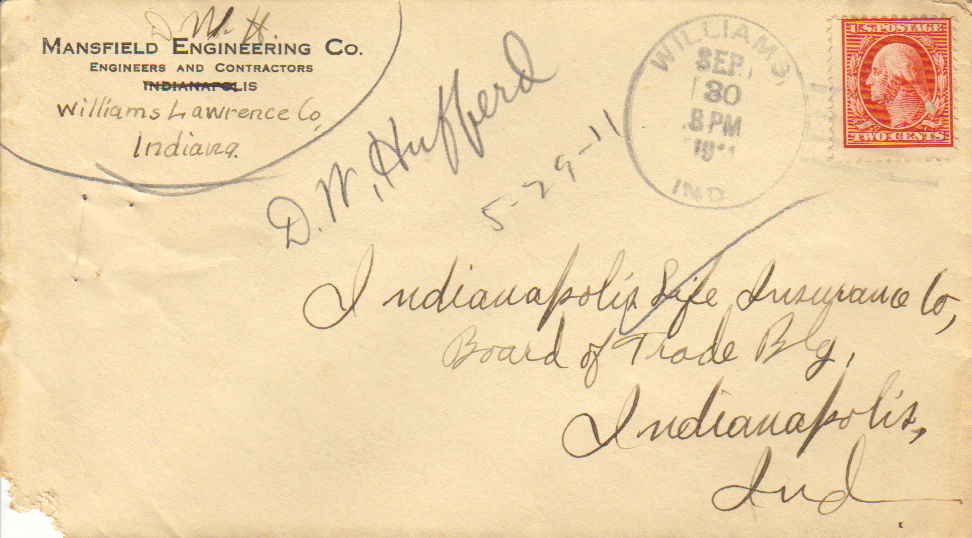 D. W. H.
MANSFIELD ENGINEERING CO.
ENGINEERS AND CONTRACTORS
INDIANAPOLIS
Williams Lawrence Co,
Indiana.
D. W. Hufferd
5-29-11
WILLIAMS,
SEP
30
8 PM
IND.
U.S. POSTAGE
TWO CENTS
Indianapolis Life Insurance Co,
Board of Trade Blg,
Indianapolis,
Ind